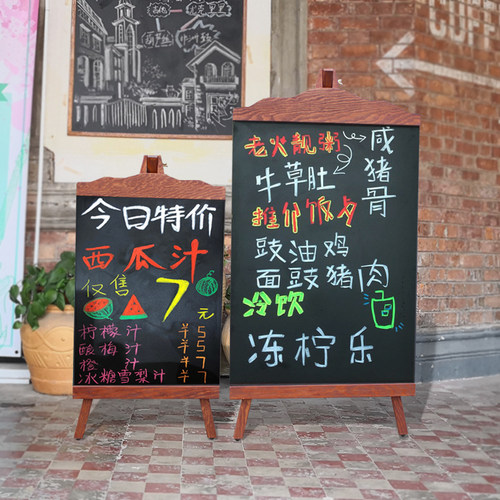 今日特价
西瓜汁
仅售7元
柠檬汁 ¥5
酸梅汁 ¥5
橙汁 ¥7
冰糖雪梨汁 ¥7
老火靓粥
咸猪骨
牛草肚
推介饭夕
豉油鸡
面豉猪肉
冷饮
冻柠乐
COFF